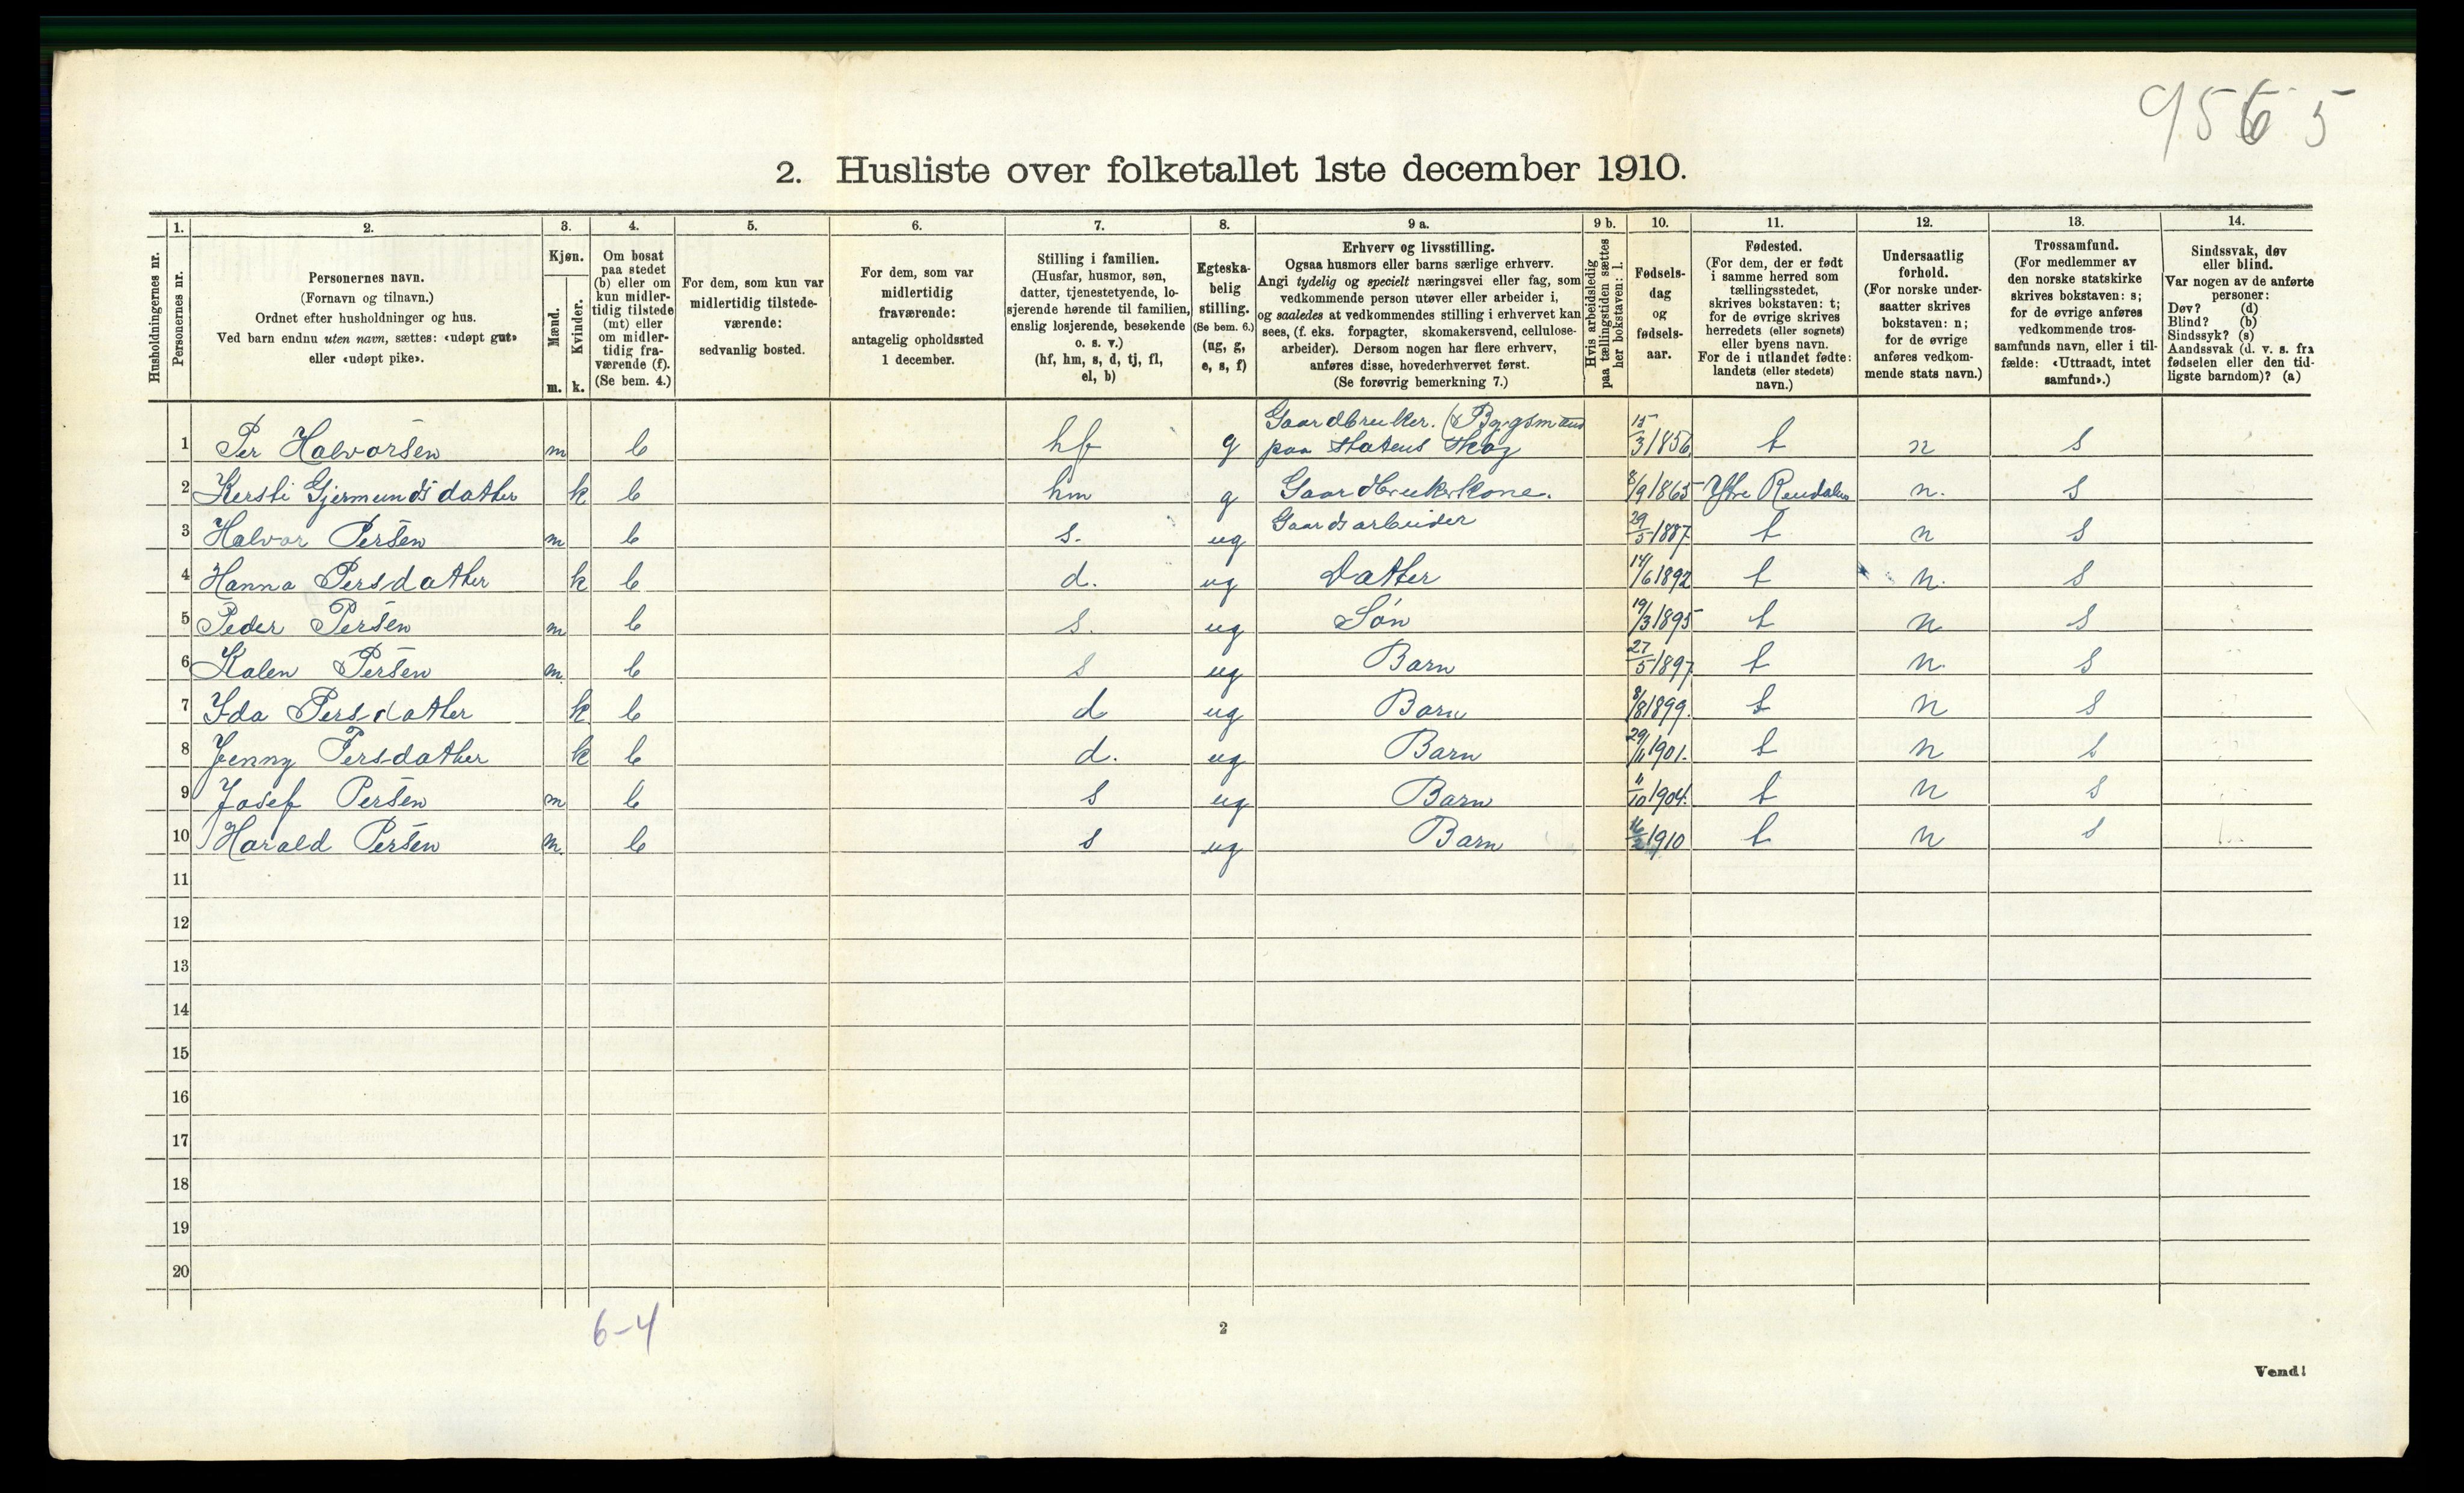 9565
2. Husliste over folketallet 1ste december 1910.
1. 2. 3. 4. 5. 6. 7. 8. 9 a. 9 b. 10. 11. 12. 13. 14.
Husholdningernes nr.
Personernes nr.
Personernes navn.
(Fornavn og tilnavn.)
Ordnet efter husholdninger og hus.
Ved barn endnu uten navn, sættes: «udøpt gut»
eller «udøpt pike».
Kjøn.
Mænd.
Kvinder.
m. k.
Om bosat
paa stedet
(b) eller om
kun midler-
tidig tilstede
(mt) eller
om midler-
tidig fra-
værende (f).
(Se bem. 4.)
For dem, som kun var
midlertidig tilstede-
værende:
sedvanlig bosted.
For dem, som var
midlertidig
fraværende:
antagelig opholdssted
1 december.
Stilling i familien.
(Husfar, husmor, søn,
datter, tjenestetyende, lo-
sjerende hørende til familien,
enslig losjerende, besøkende
o. s. v.)
(hf, hm, s, d, tj, fl,
el, b)
Egteska-
belig
stilling.
(Se bem. 6.)
(ug, g,
e, s, f)
Erhverv og livsstilling.
Ogsaa husmors eller barns særlige erhverv.
Angi tydelig og specielt næringsvei eller fag, som
vedkommende person utøver eller arbeider i,
og saaledes at vedkommendes stilling i erhvervet kan
sees, (f. eks. forpagter, skomakersvend, cellulose-
arbeider). Dersom nogen har flere erhverv,
anføres disse, hovederhvervet først.
(Se forøvrig bemerkning 7.)
Hvis arbeidsledig
paa tællingstiden sættes
her bokstaven: l.
Fødsels-
dag
og
fødsels-
aar.
Fødested.
(For dem, der er født
i samme herred som
tællingsstedet,
skrives bokstaven: t;
for de øvrige skrives
herredets (eller sognets)
eller byens navn.
For de i utlandet fødte:
landets (eller stedets)
navn.)
Undersaatlig
forhold.
(For norske under-
saatter skrives
bokstaven: n;
for de øvrige
anføres vedkom-
mende stats navn.)
Trossamfund.
(For medlemmer av
den norske statskirke
skrives bokstaven: s;
for de øvrige anføres
vedkommende tros-
samfunds navn, eller i til-
fælde: «Uttraadt, intet
samfund».)
Sindssvak, døv
eller blind.
Var nogen av de anførte
personer:
Døv? (d)
Blind? (b)
Sindssyk? (s)
Aandssvak (d. v. s. fra
fødselen eller den tid-
ligste barndom)? (a)
1 Per Halvorsen m b hf g Gaardbruker. (Bygsmand paa statens skog 15/3 1856. t n s
2 Kersti Gjermundsdatter k b hm g Gaardbrukerkone. 8/9 1865 Ytre Rendalen n. s
3 Halvor Persen m b s. ug Gaardsarbeider 29/5 1887. t n s
4 Hanna Persdatter k b d. ug Datter 14/6 1892 t n. s
5 Peder Persen m b s. ug Søn 19/3 1895 t n s
6 Kalen Persen m. b s ug Barn 27/5 1897. t n. s
7 Ida Persdatter k b d ug Barn 8/8 1899. t n s
8 Jenny Persdatter k b d. ug Barn 29/11 1901. t n s
9 Josef Persen m b s ug Barn 11/10 1904. t n s
10 Harald Persen m. b s ug Barn 16/2 1910 t n s
11
12
13
14
15
16
17
18
19
20
6-4
2
Vend!